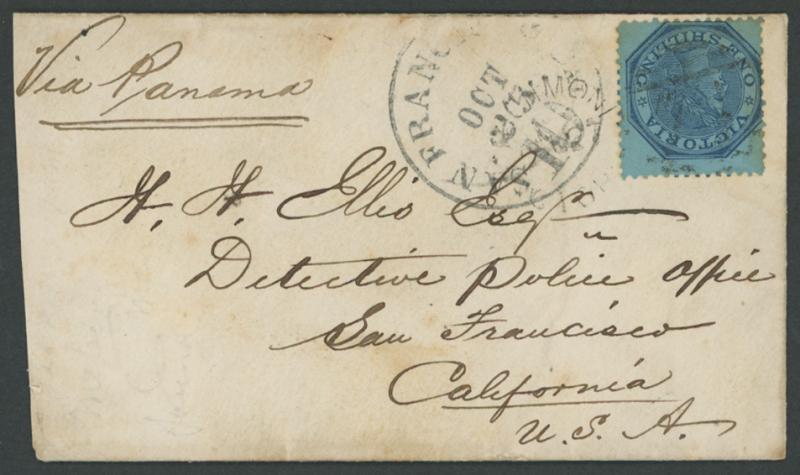 Via Panama
SAN FRANC
OCT
10
ONE SHILLING
VICTORIA
H. H. Ellis Esqr
Detective Police Office
San Francisco
California
U. S. A.